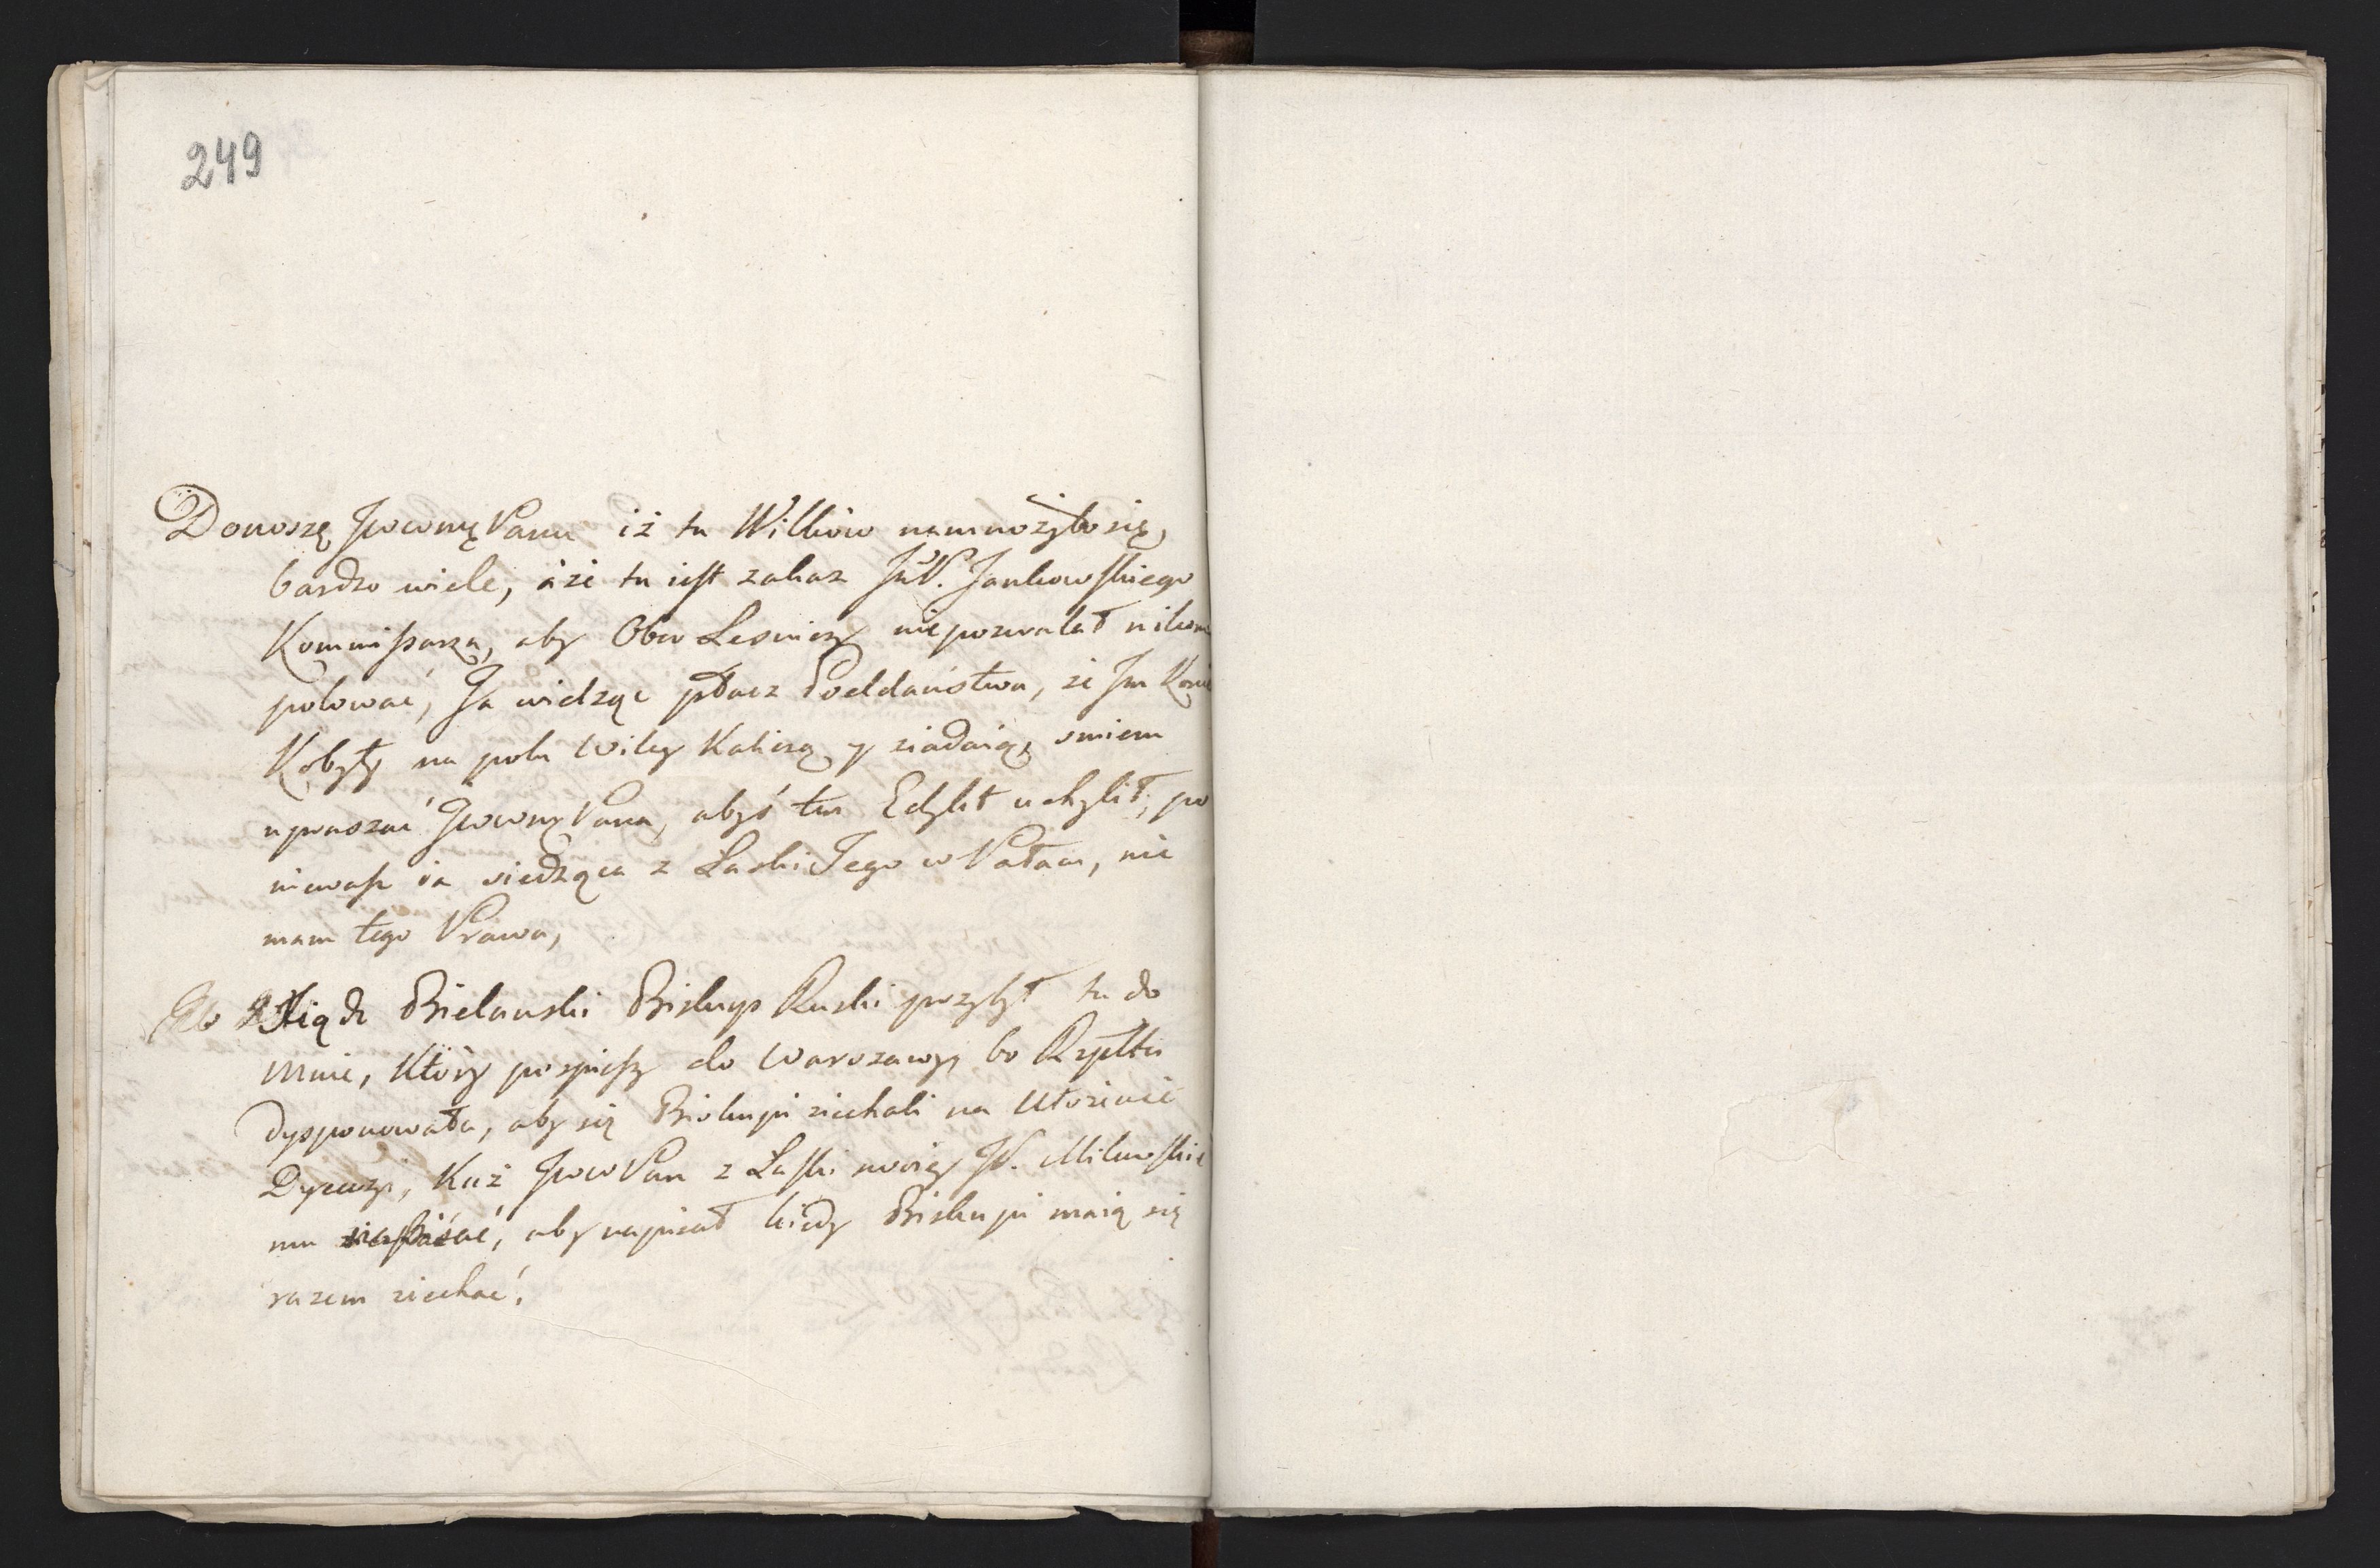 249
Donoszę Jwwmę Panu iż tu Wilków namnożyło się,
bardzo wiele, áże tu iest zakaz JW. Jankowskiego
Kommißarza, aby Ober Lesniczy niepozwalał nikom
polować, Ja widząc płacz Poddaństwa, że Jm Koni
Kobyły na polu Wilcy Kaliczą y ziadaią, smiem
upraszać Jwwmę Pana, abyś ten Edykt uchylił, po
niewaß ia siedząca z Laski Jego w Pałacu, nie
mam tego Prawa,
Xiądz Bielanski Biskup Ruski przybył tu do
mnie, Który pospieszy do Warszawy, bo Rzpltta
dysponowała, aby się Biskupi ziechali na Ułożenie
Dyecezyi, Każ Jwwe Pan z Laski swoiey JP. Milewskie
mu napisać, aby napisał kiedy Biskupi maią się
razem ziechać.